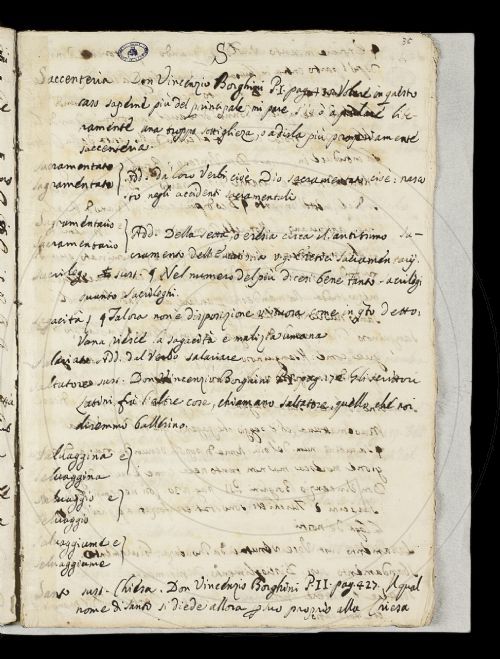 36
S
Saccenteria Don Vincenzio Borghini P. I. pag. in questo
caso saperne più del principale mi pare a parlare libe-
ramente una troppa sottigliezza, o a dirla più propriamente
saccenteria
Sacramentato
Sagramentato Add. da loro Verbi cioè Dio sacramentato cioè: nasco
sto negli accidenti sacramentali
Sagramentario e
Sacramentario Add. Della setta, o eresia circa il santissimo Sa-
cramento dell' v.g. Eretici Sacramentarj
sust. ¶ Nel numero del più dicesi bene tanto
quanto sacrileghi.
¶ Talora non è disposizione virtuosa come in q.to detto:
Vana è sagacità e malizia umana
Add. dal Verbo salariare
sust. Don Vincenzio Borghini pag. 172 Gli scrittori
Latini fra l'altre cose, chiamano saltatore, quello che noi
diremmo ballerino.
Salvaggina e
selvaggina
Salvaggio e
selvaggio
Salvaggiume e
selvaggiume
Santo sust. Chiesa. Don Vincenzio Borghini P. II. pag. 427. Il qual
nome di santo si diede allora suo proprio alla Chiesa